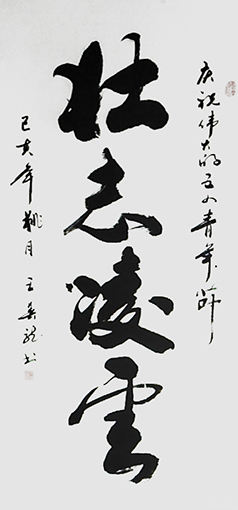 庆祝伟大的五四青年节
壮志凌雲
己亥年桃月 王
书